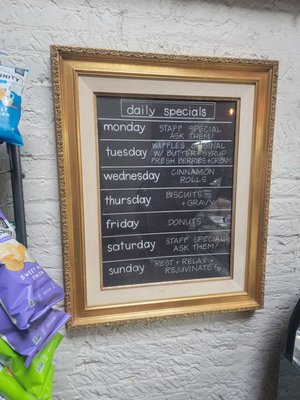 daily specials
monday STAFF SPECIAL
ASK THEM!
tuesday WAFFLES ORIGINAL
W/ BUTTER + SYRUP
FRESH BERRIES + CREAM
wednesday CINNAMON
ROLLS
thursday BISCUITS
+ GRAVY
friday DONUTS
saturday STAFF SPECIAL
ASK THEM!
sunday REST + RELAX +
REJUVINATE